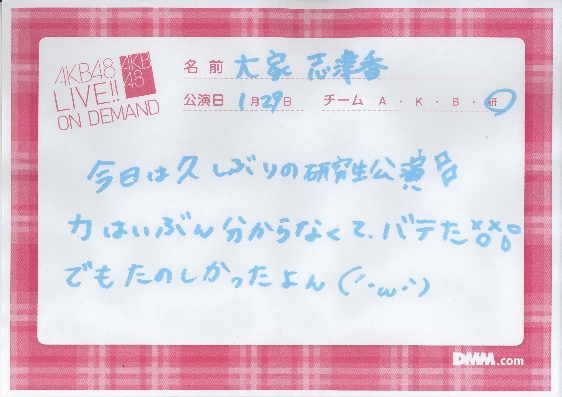 AKB48
LIVE!!
ON DEMAND
AKB
48
名前 大家 志津香
公演日 1月29日 チーム A・K・B・研
今日は久しぶりの研究生公演
力はいぶん分からなくて、バテた××
でもたのしかったよん(´・ω・`)
DMM.com